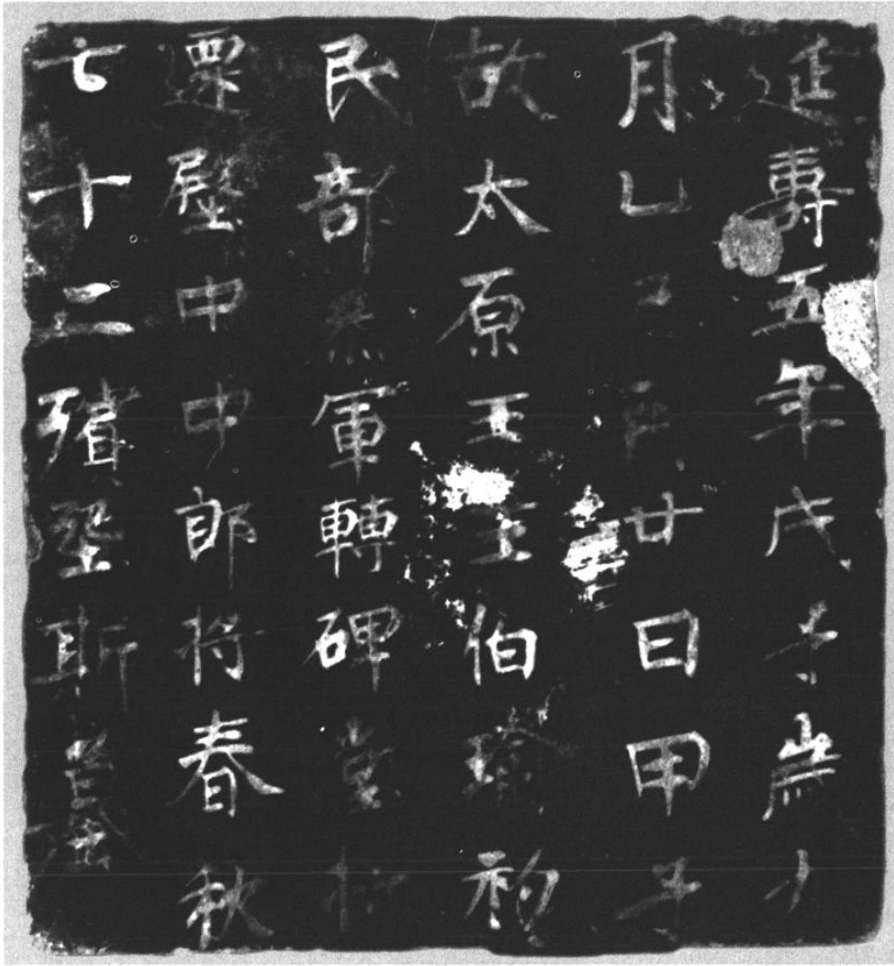 延壽五年戊子歲九
月乙巳朔廿日甲子
故太原王伯瑜初
民部叅軍轉碑堂將
遷殿中中郎將春秋
七十二殯塟斯墓